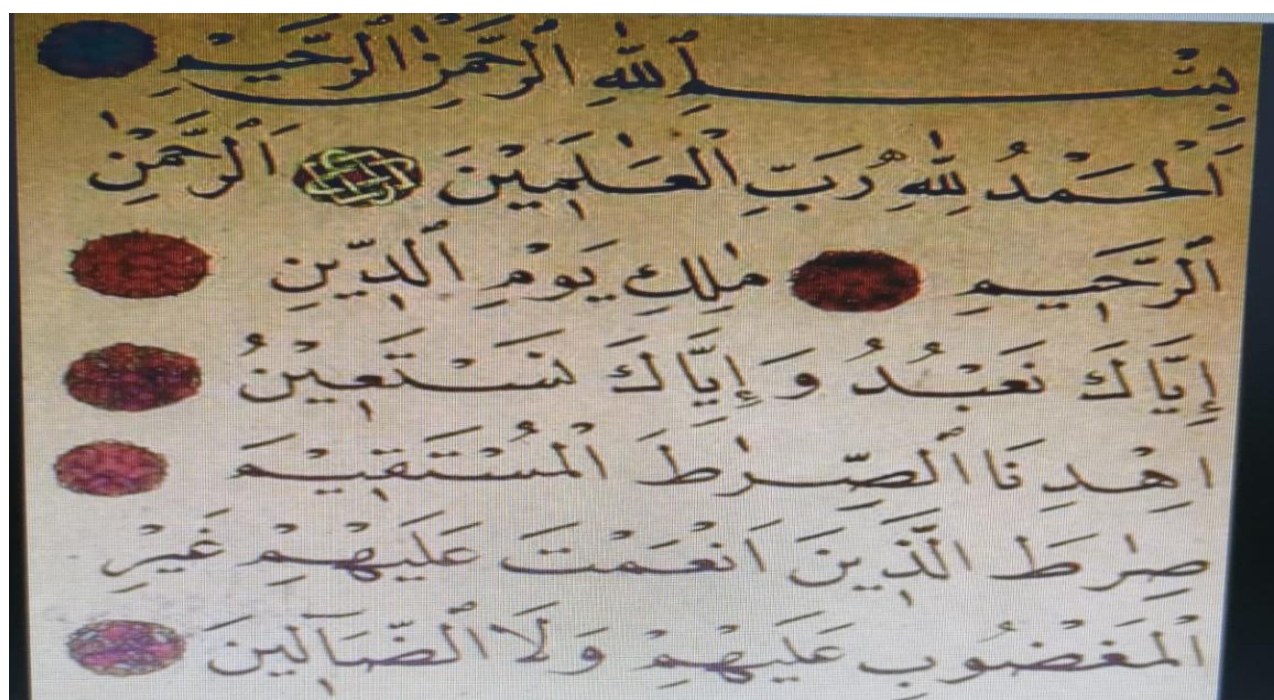 بِسْــــــمِ ٱللّٰهِ ٱلرَّحْمٰنِ ٱلرَّحِيْمِ
اَلْحَـمْدُ لِلّٰهِ رَبِّ ٱلْعَـٰلَمِيْنَ اَلرَّحْمٰنِ
ٱلرَّحِيْمِ مٰلِكِ يَوْمِ ٱلدِّيْنِ
إِيَّاكَ نَعْبُدُ وَإِيَّاكَ نَسْتَعِيْنُ
اِهْدِنَا ٱلصِّرٰطَ ٱلْمُسْتَقِيْمَ
صِرٰطَ الَّذِيْنَ اَنْعَمْتَ عَلَيْهِمْ غَيْرِ
ٱلْمَغْضُوبِ عَلَيْهِمْ وَلَا ٱلضَّآلِّيْنَ